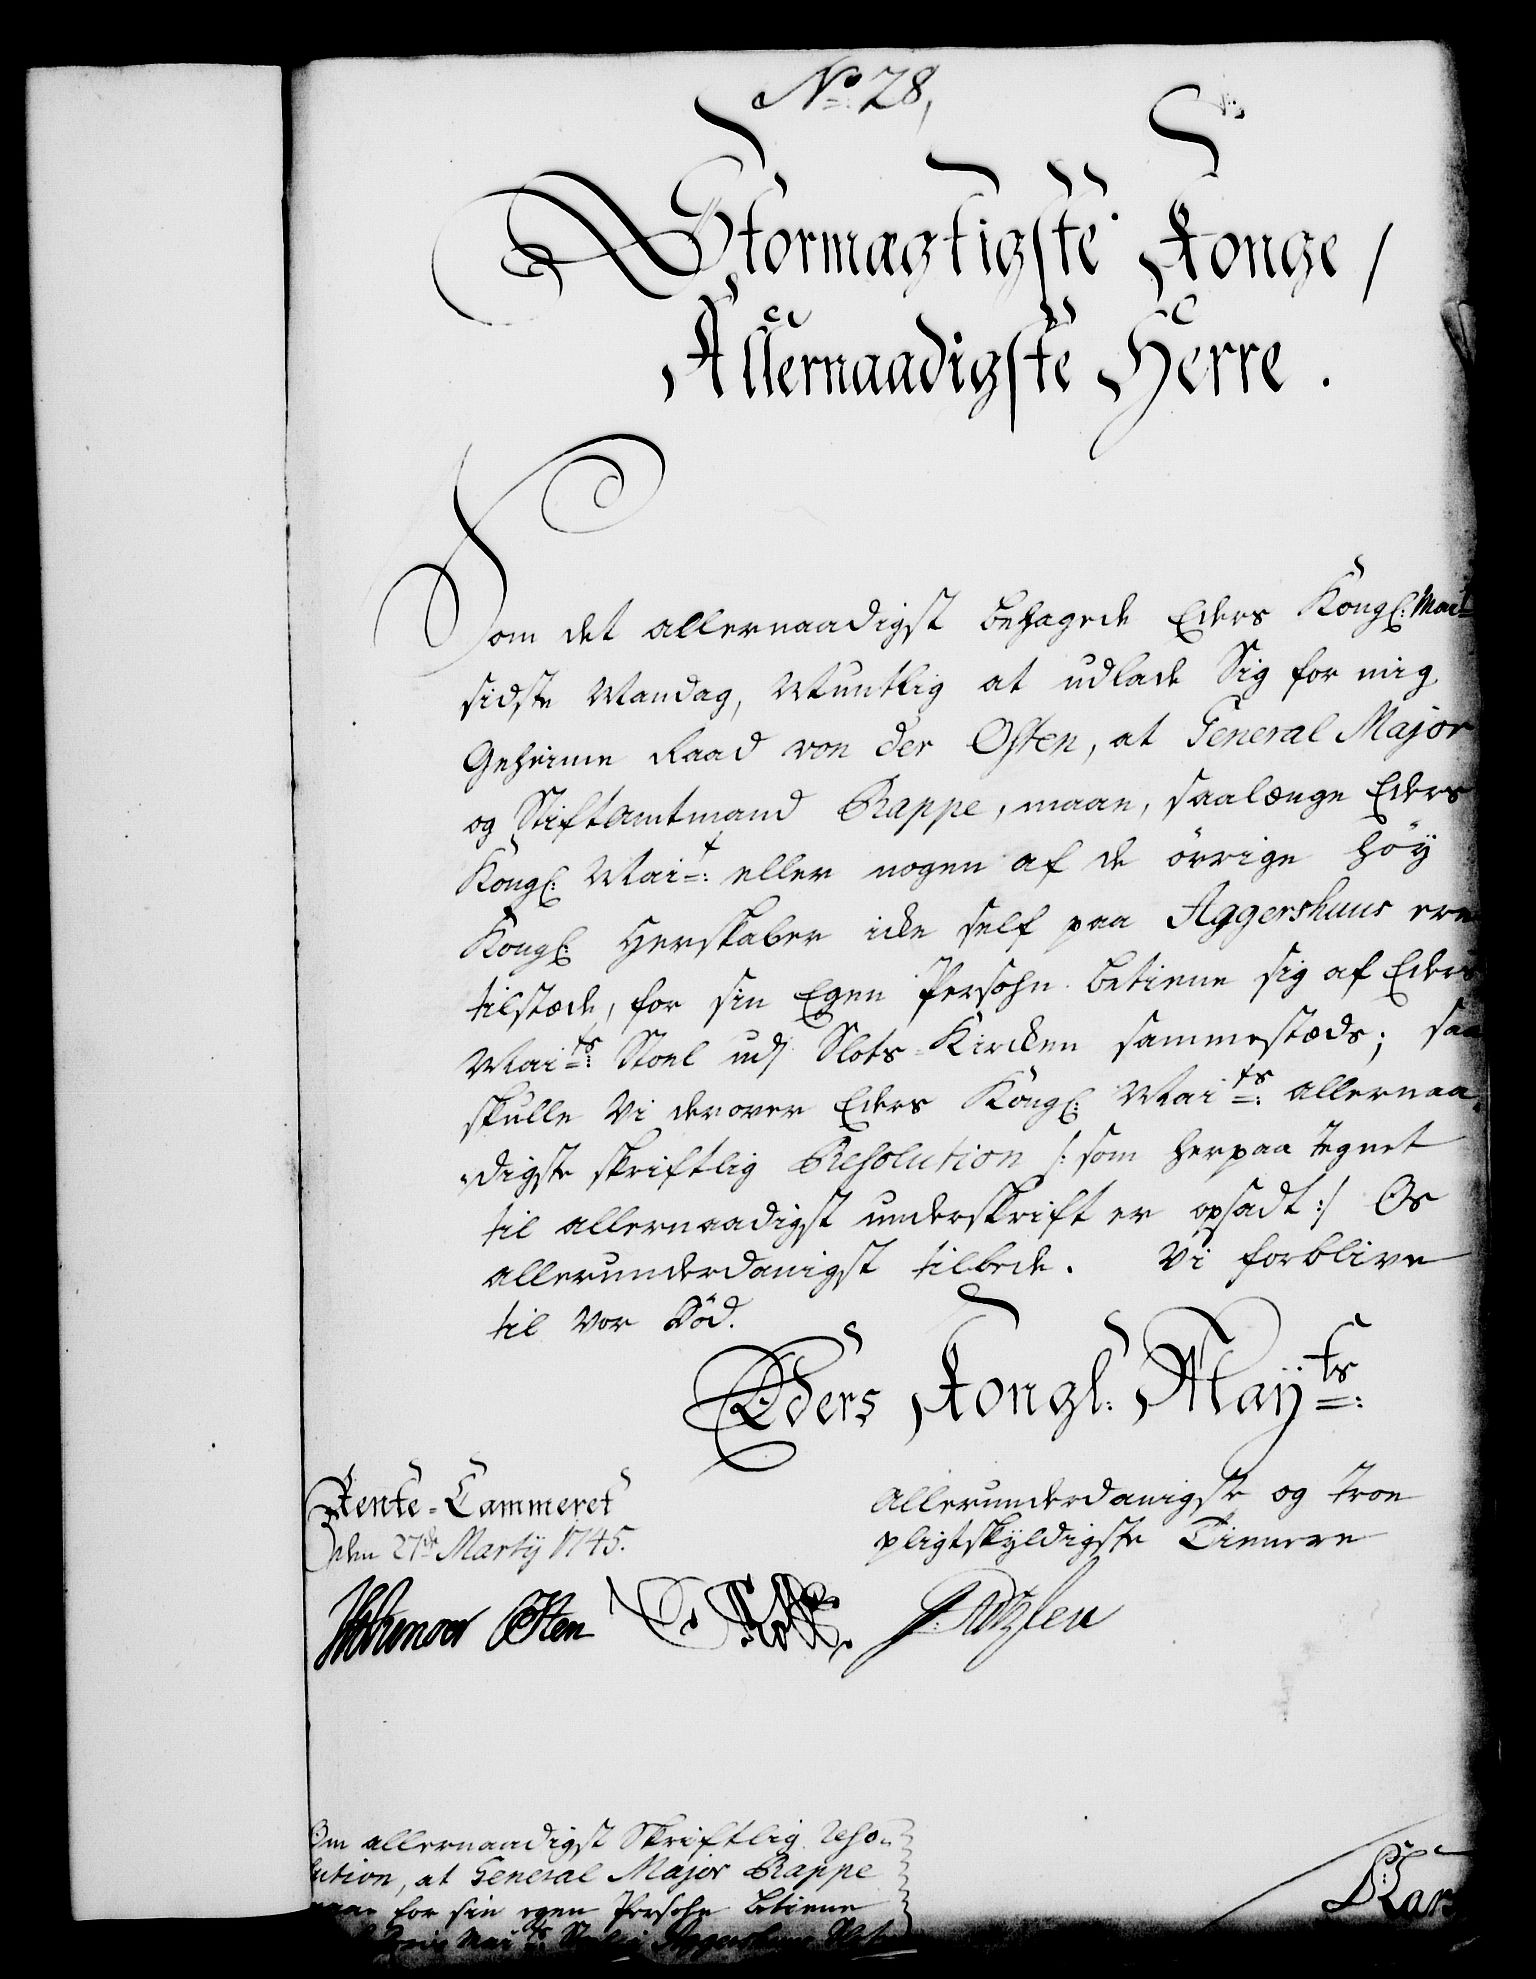 No. 28,
Stormægtigste Konge /
Allernaadigste Herre.
Som det allernaadigst behagede Eders Kongl: Mait
sidste Mandag, Mundtlig at udlade Sig for mig
Geheime Raad von der Osten, at General Major
og Stiftamtmand Rappe, maae, saalænge Eders
Kongl: Mait: eller nogen af de övrige Höy
Kongl: Herskaber icke self paa Aggershuus ere
tilstæde, for sin Egen Persohn betiene sig af Eders
Maits: Stoel udj Slots-Kircken sammestæds; saa
skulle Vi derover Eders Kongl: Maits: allernaa-
digste skriftlig Resolution /: som herpaa tegnet
til allernaadigst underskrift er opsadt :/ Os
allerunderdanigst tilbede. Vi forblive
til vor Död.
Eders Kongl: Mayts:
Rente-Cammeret
den 27de Martij 1745.
Allerunderdanigste og troe
pligtskyldigste Tienere
Osten
Om allernaadigst Skriftlig Reso-
lution, at General Major Rappe
maae for sin egen Persohn betiene
Maits: